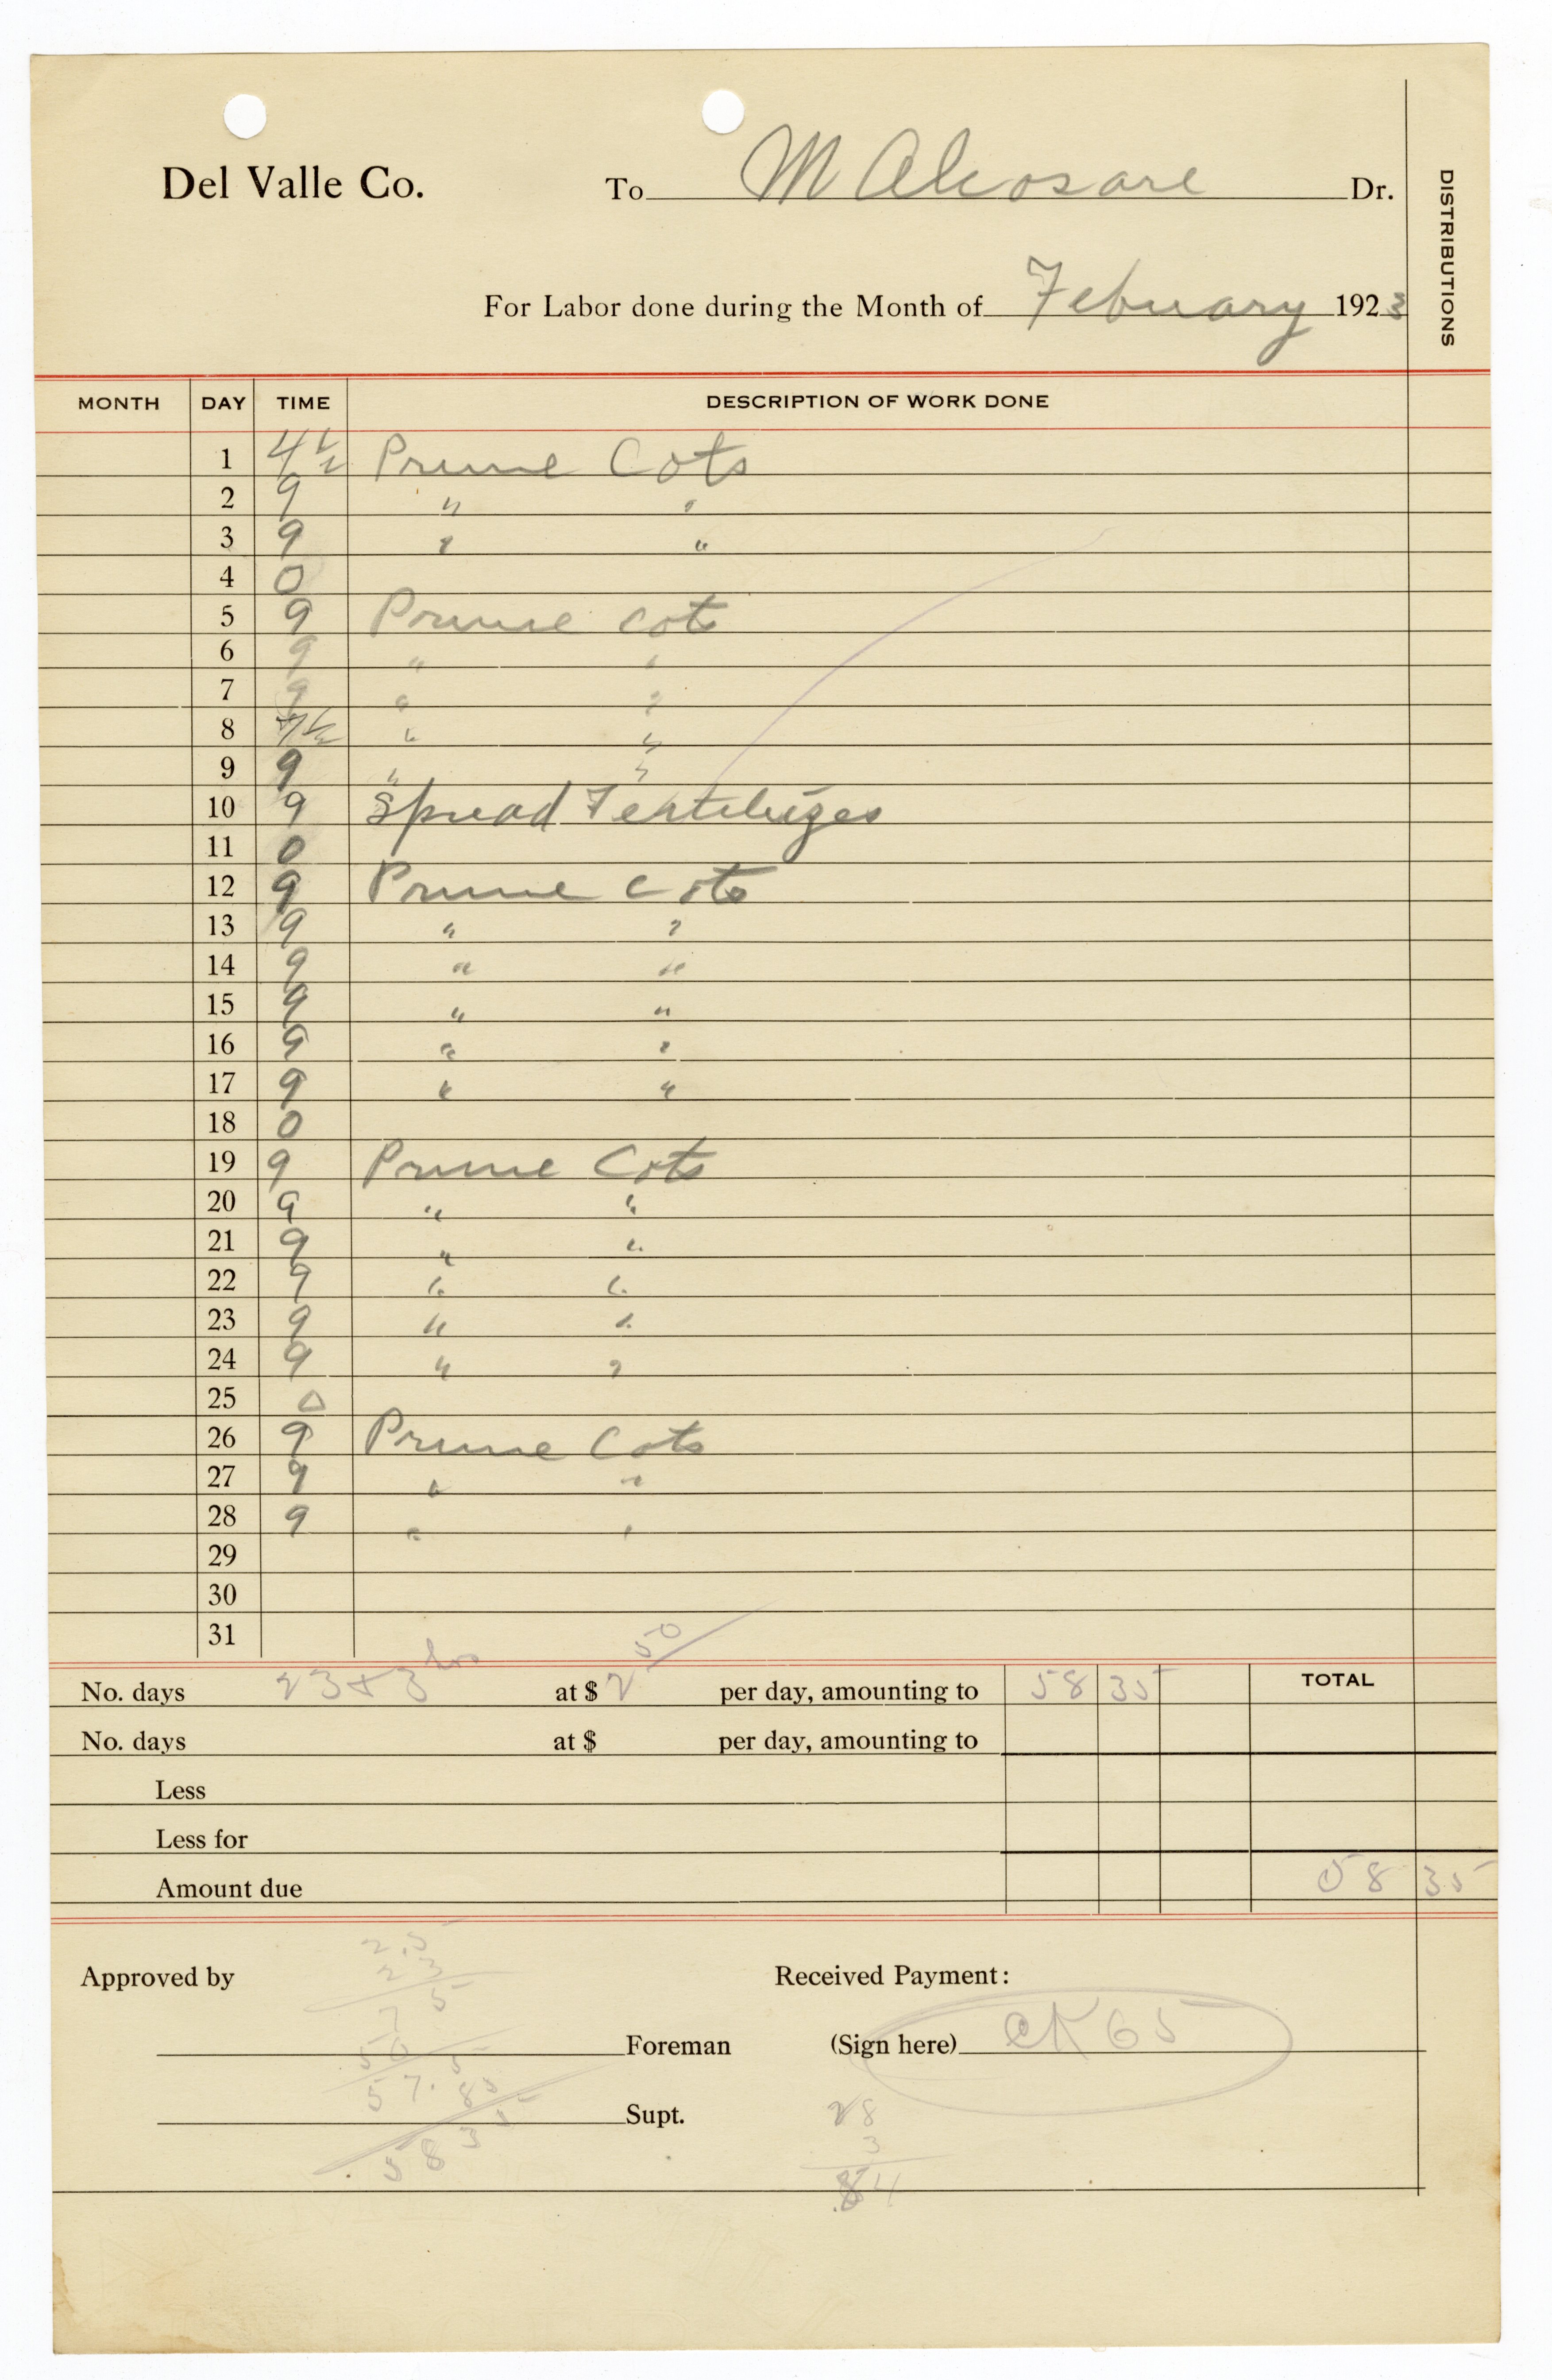 Del Valle Co. To M Alcosare Dr.
DISTRIBUTIONS
For Labor done during the Month of Febuary 1923
MONTH DAY TIME DESCRIPTION OF WORK DONE
1 4 1/2 Prune Cots
2 9 " "
3 9 " "
4 0
5 9 Prune cots
6 9 " "
7 9 " "
8 7 1/2 " "
9 9 " "
10 9 Spread Fertilizes
11 0
12 9 Prune Cots
13 9 " "
14 9 " "
15 9 " "
16 9 " "
17 9 " "
18 0
19 9 Prune Cots
20 9 " "
21 9 " "
22 9 " "
23 9 " "
24 9 " "
25 0
26 9 Prune Cots
27 9 " "
28 9 " "
29
30
31
No. days 23 & 3 hrs at $ 2 50 per day, amounting to 58 35 TOTAL
No. days at $ per day, amounting to
Less
Less for
Amount due 58 35
2.5
23
7 5
50
57.5
85
58 35
Approved by Received Payment:
Foreman (Sign here) CK 65
Supt.
28
3
84